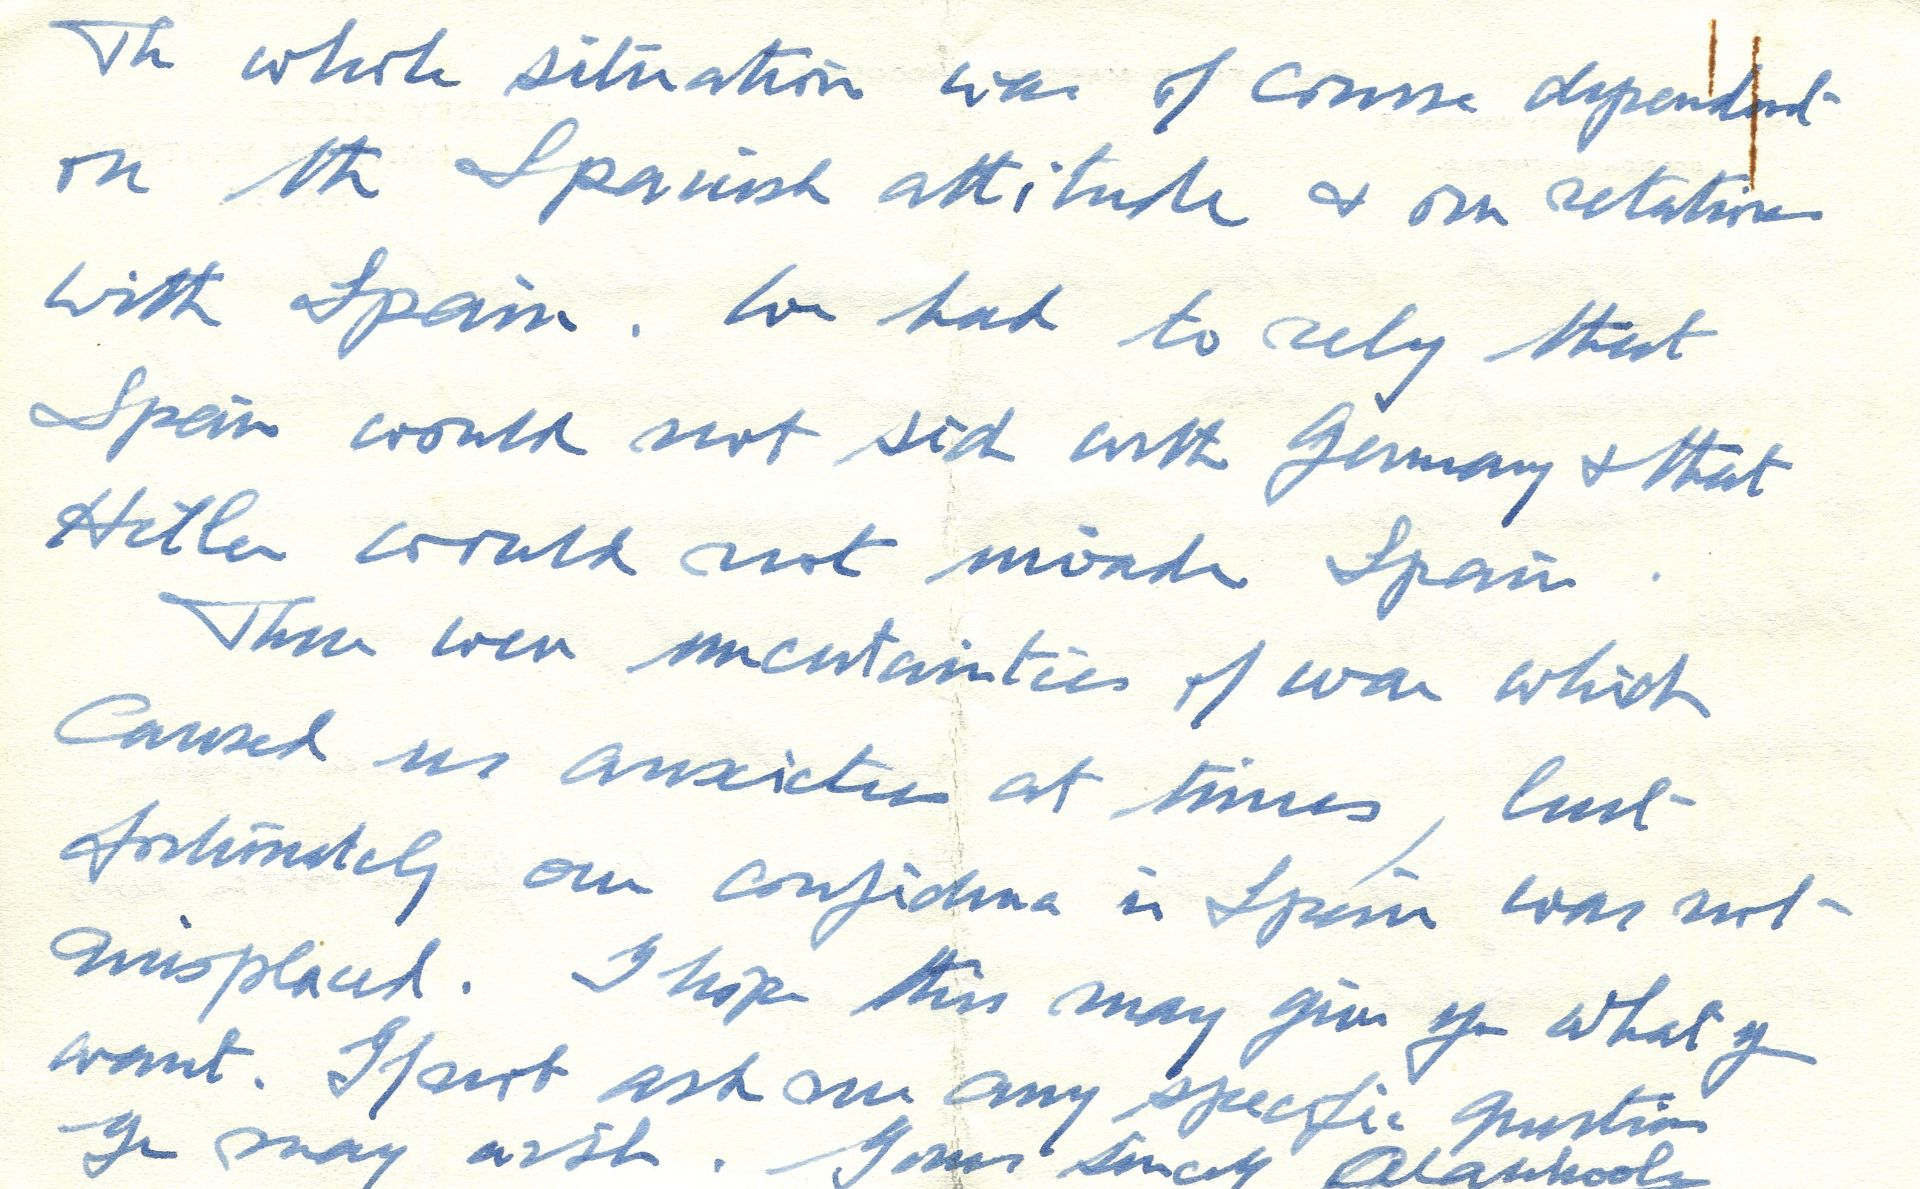 The whole situation was of course dependent
on the Spanish attitude & our relations
with Spain. We had to rely that
Spain would not side with Germany & that
Hitler would not invade Spain.
These were uncertainties of war which
caused us anxieties at times, but
fortunately our confidence in Spain was not
misplaced. I hope this may give you what you
want. If not ask me any specific question
you may wish. Yours sincerely